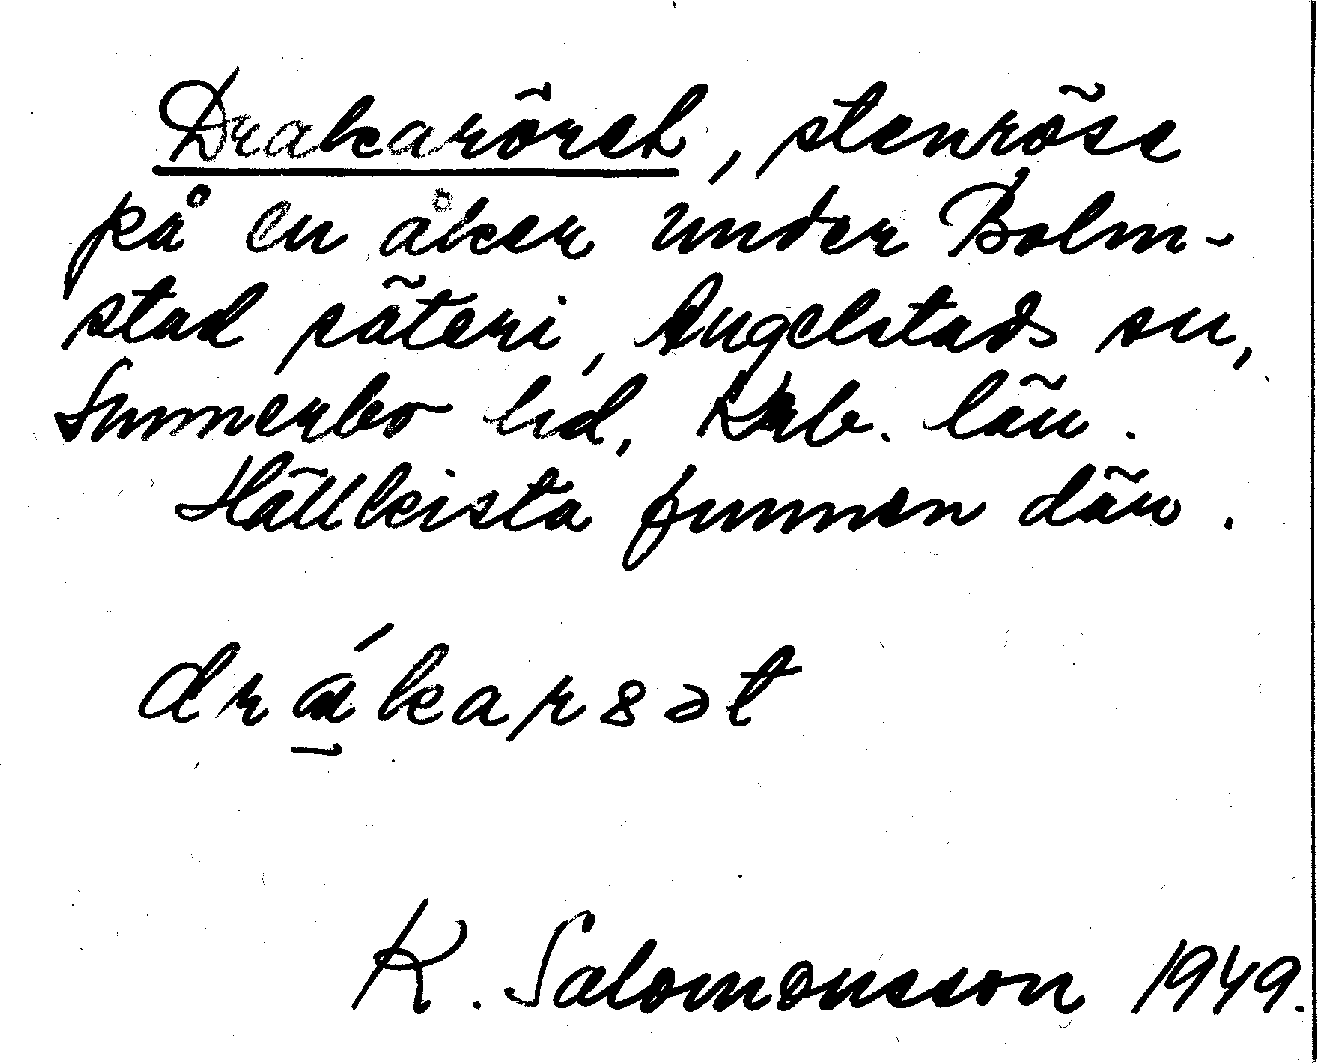 Drakaröret, stenröse
på en åker under Bolm-
stad säteri, Angelstads sn,
Sunnerbo hd, Krb. län.
Hällkista funnen där.
drákarsət
K. Salomonsson 1949.